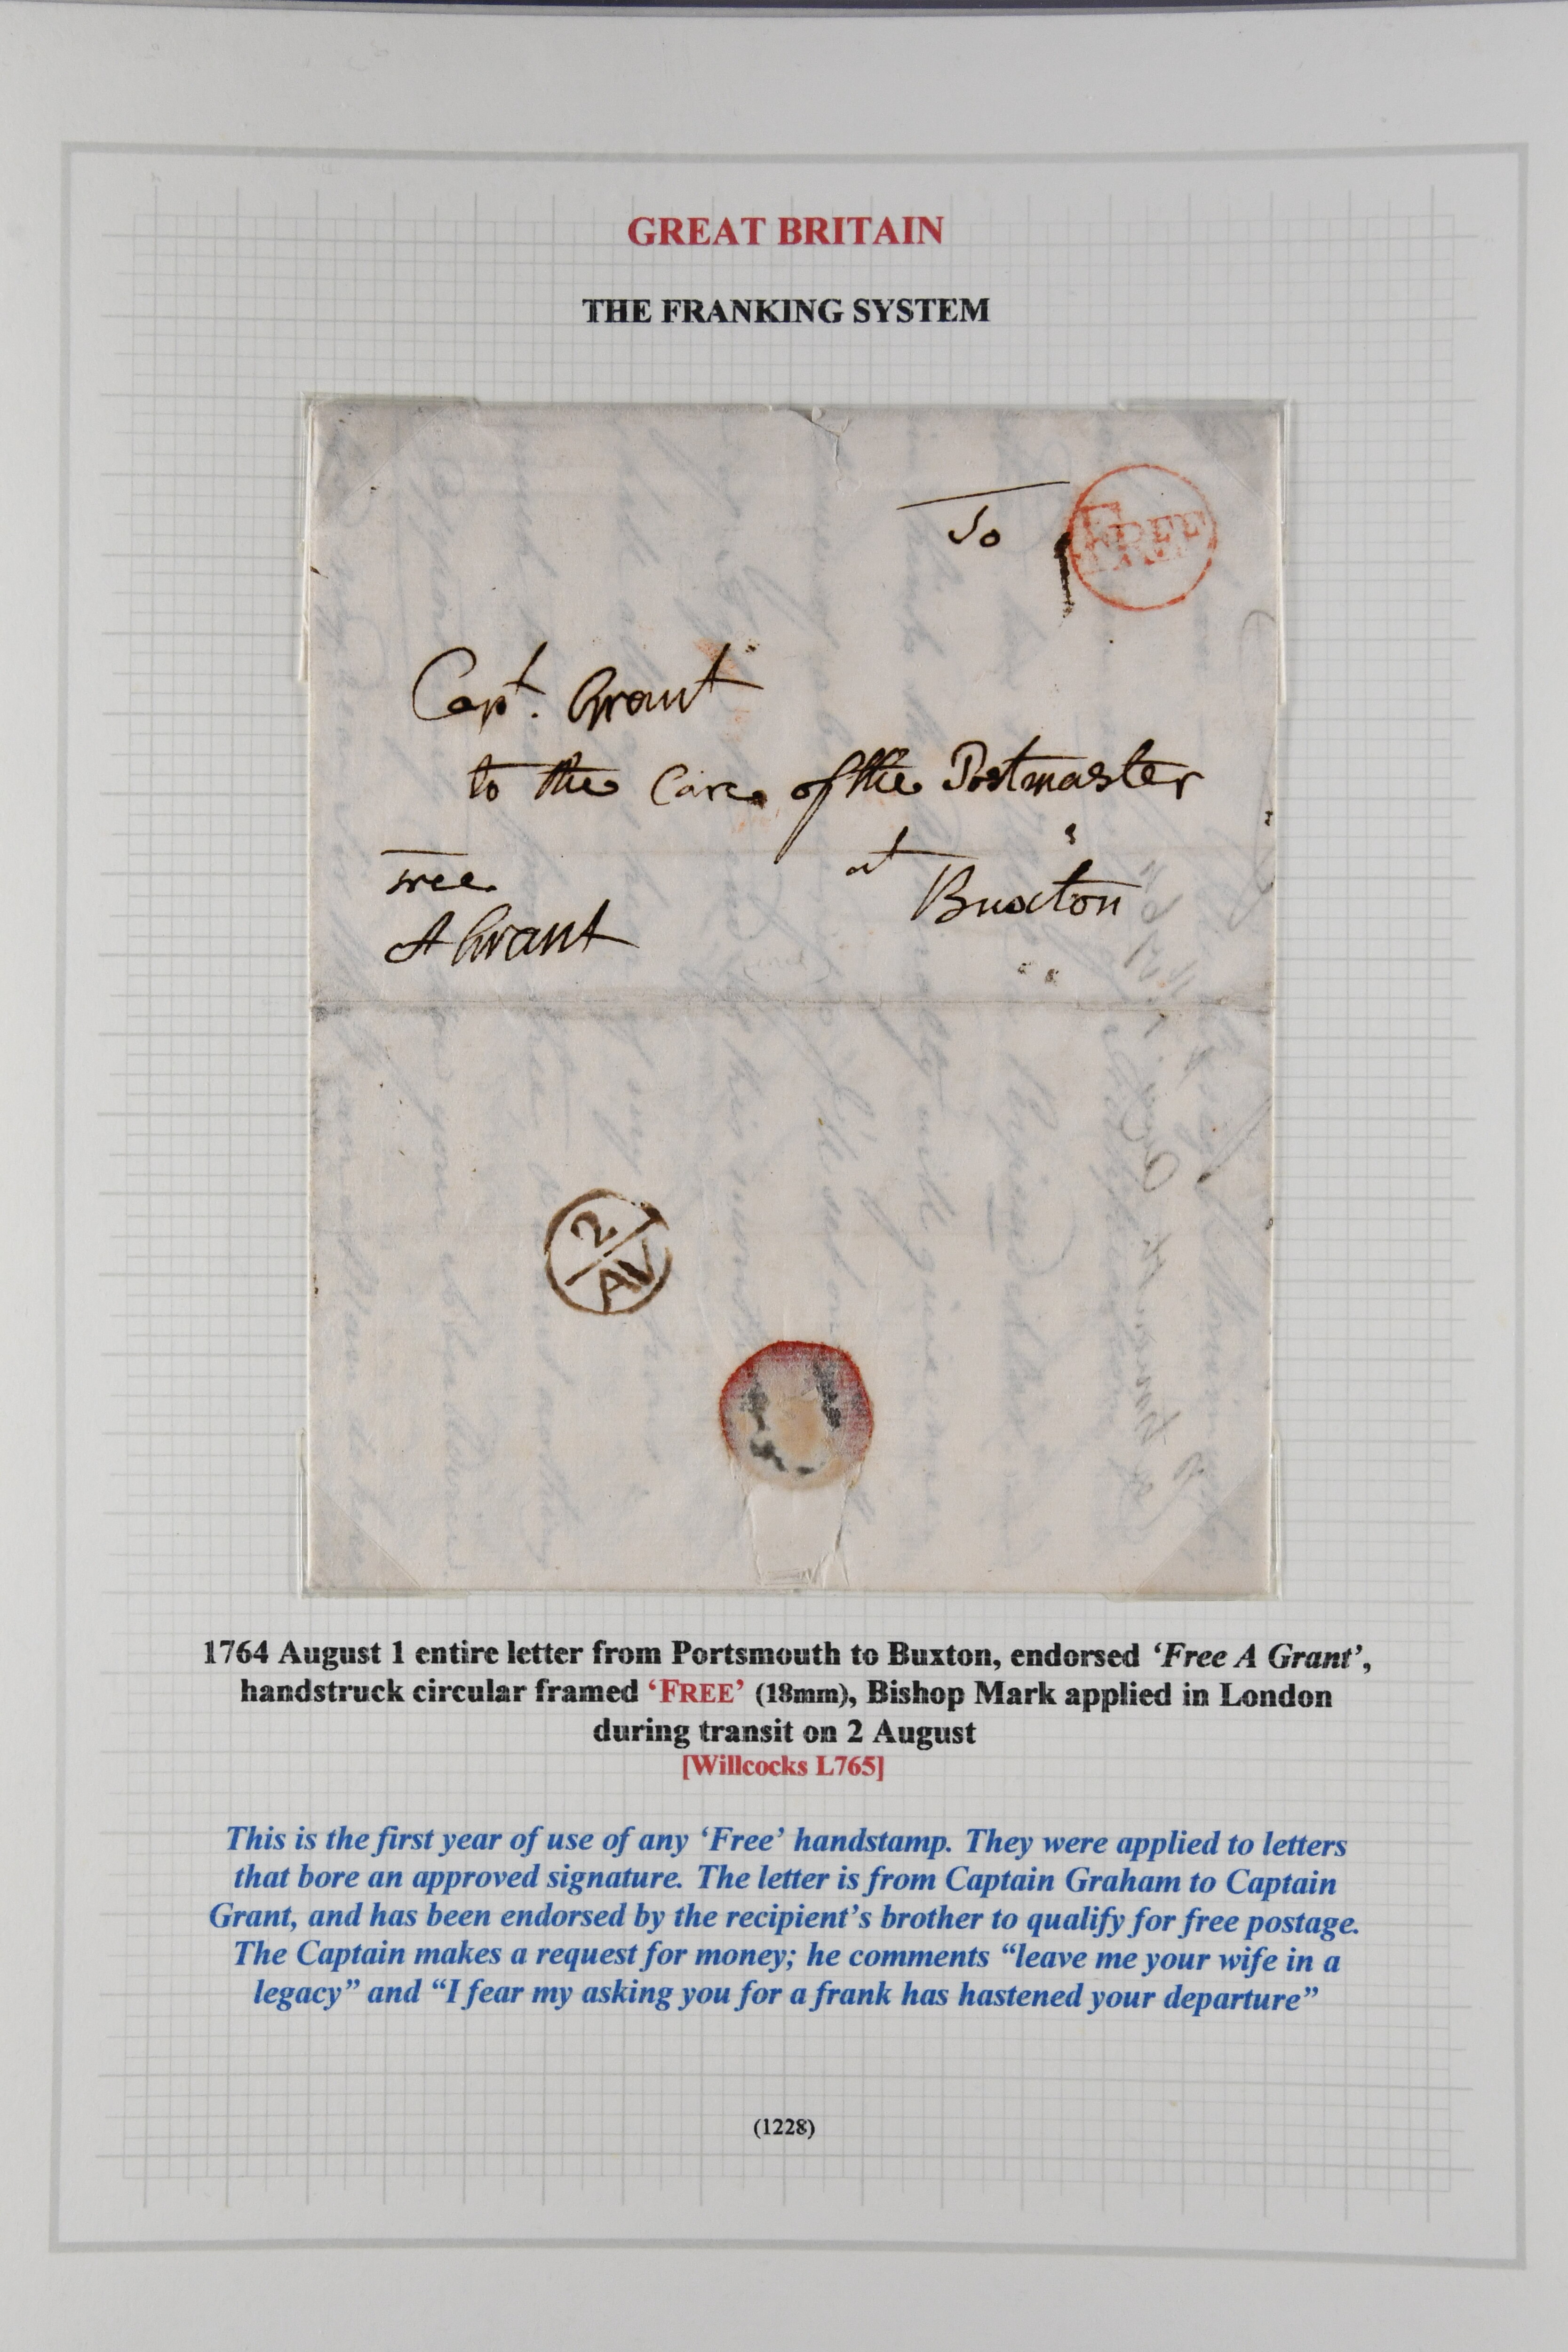 GREAT BRITAIN
THE FRANKING SYSTEM
To
FREE
Capt. Grant
to the Care of the Postmaster
at
Buxton
Free
A Grant
2
AV
1764 August 1 entire letter from Portsmouth to Buxton, endorsed ‘Free A Grant’,
handstruck circular framed ‘FREE’ (18mm), Bishop Mark applied in London
during transit on 2 August
[Willcocks L765]
This is the first year of use of any ‘Free’ handstamp. They were applied to letters
that bore an approved signature. The letter is from Captain Graham to Captain
Grant, and has been endorsed by the recipient’s brother to qualify for free postage.
The Captain makes a request for money; he comments “leave me your wife in a
legacy” and “I fear my asking you for a frank has hastened your departure”
(1228)